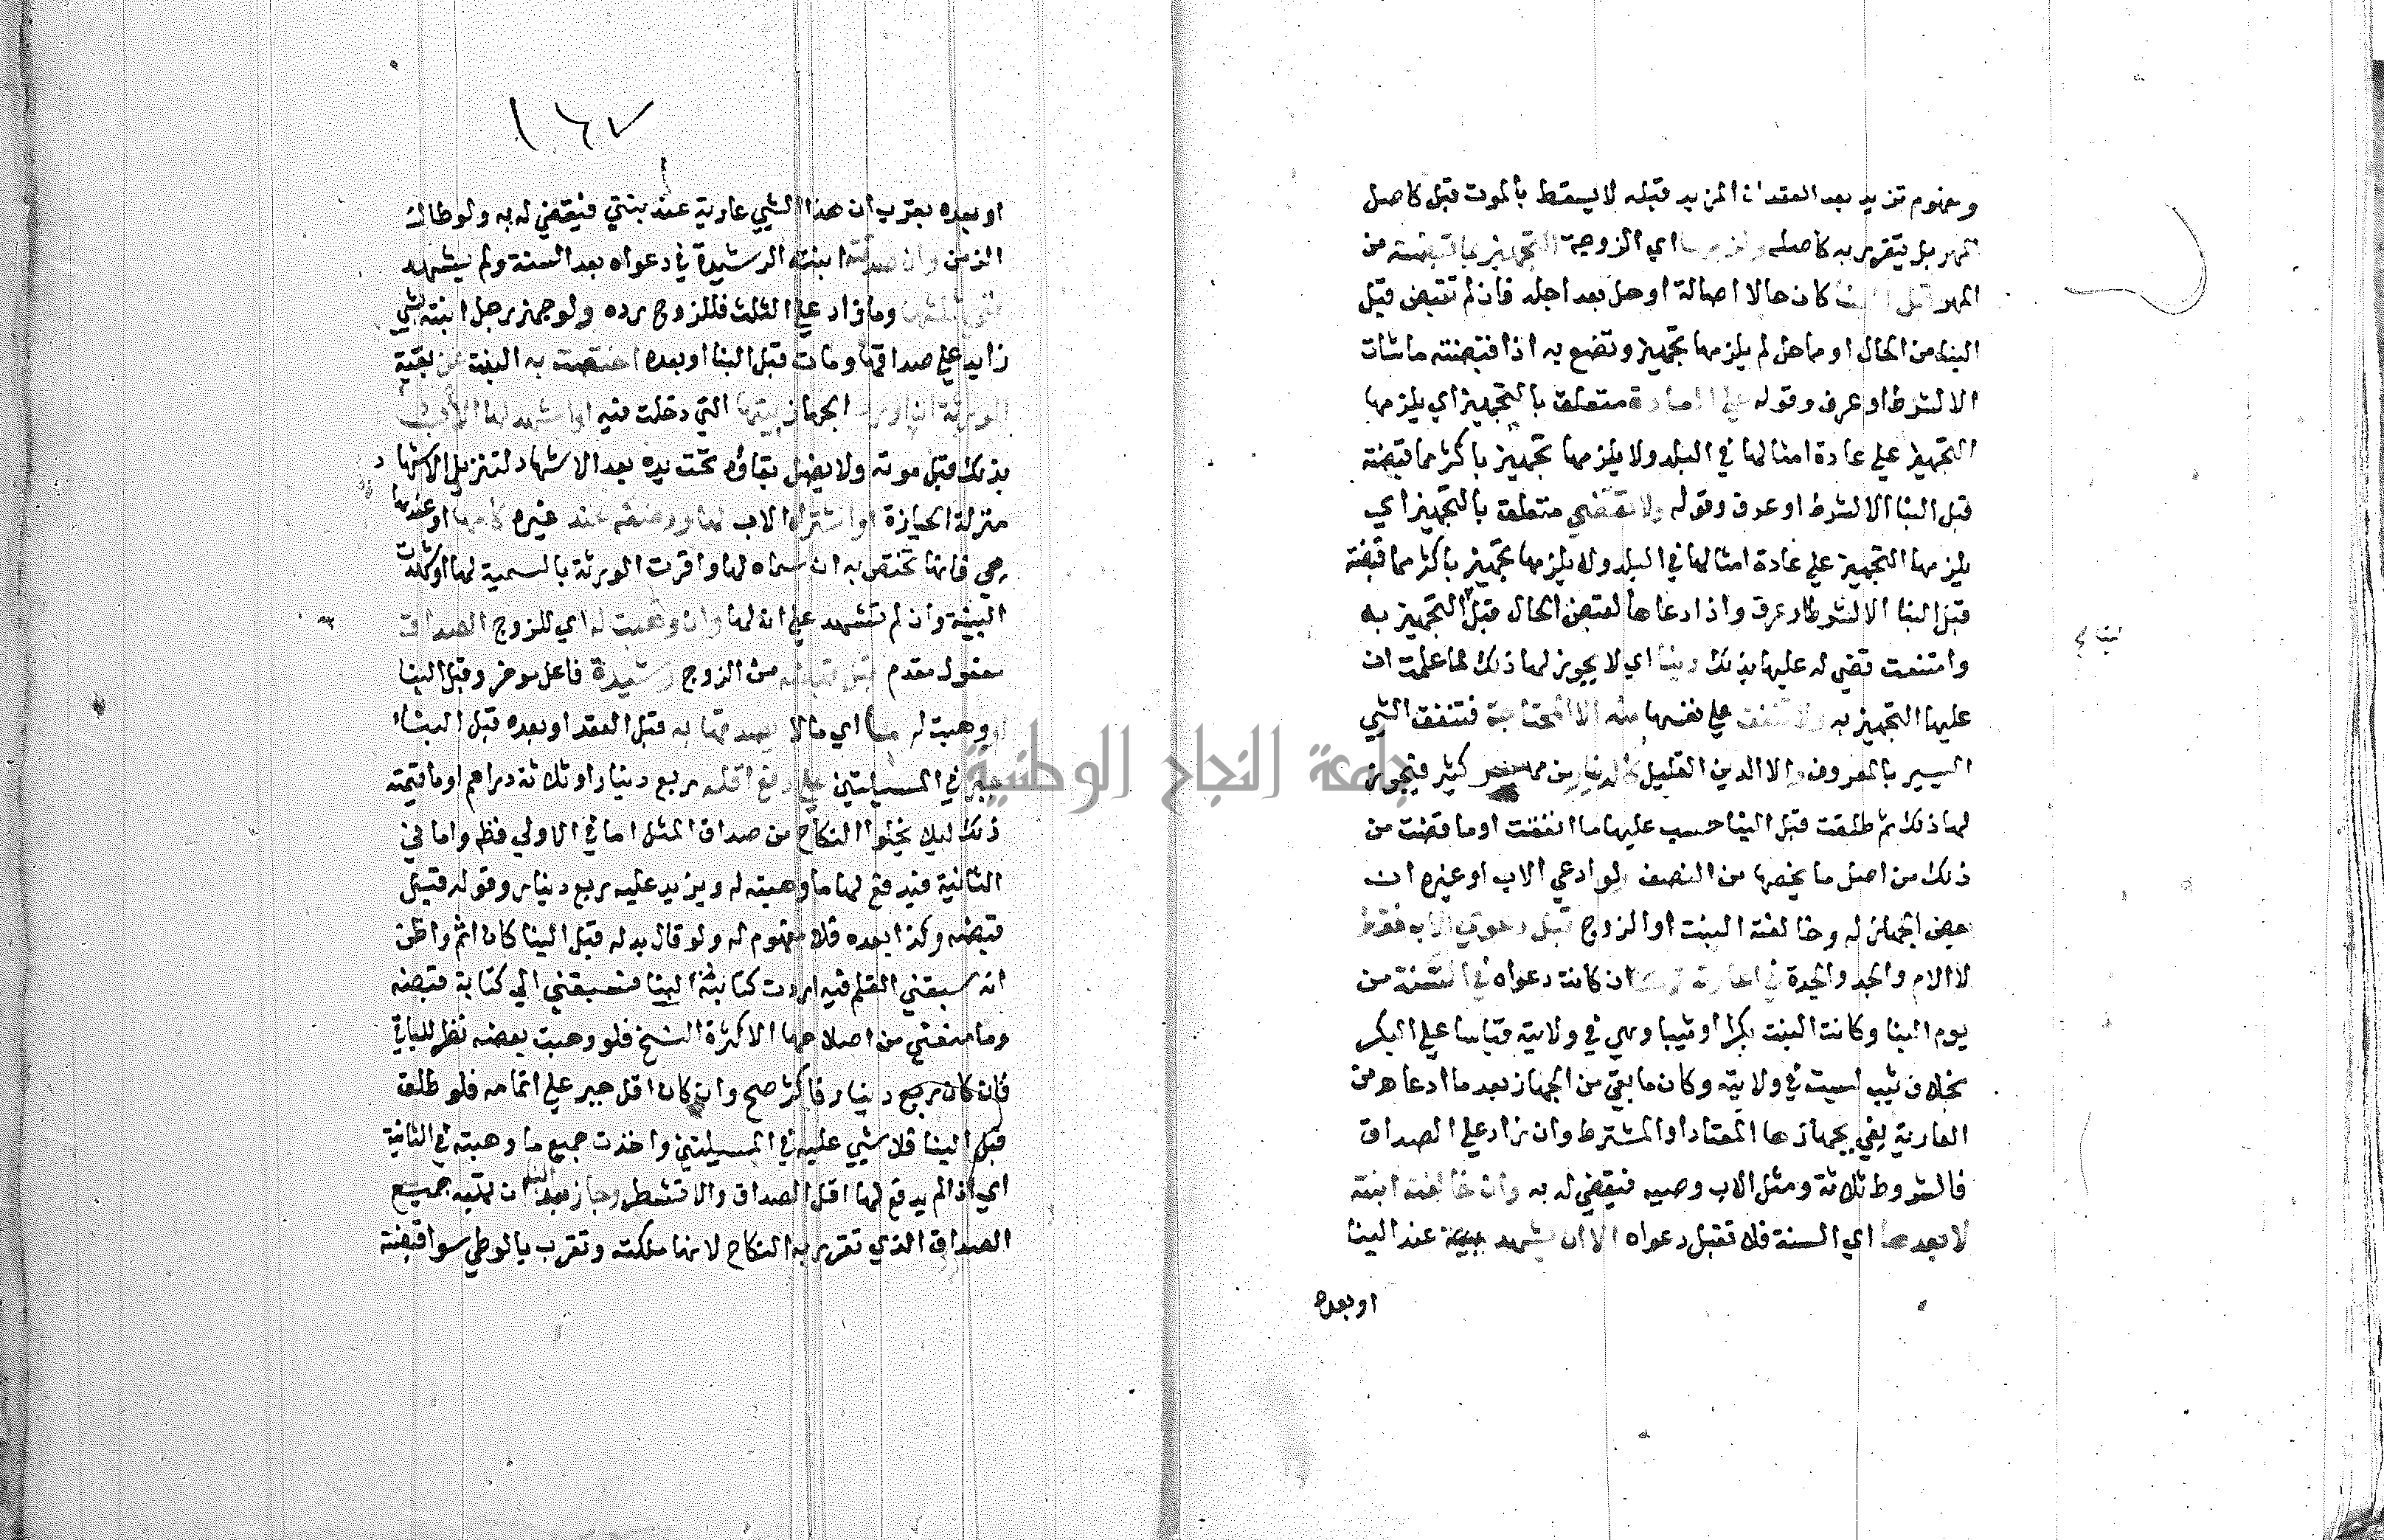 ومفهوم تزيد بعد العقد ان المزيد قبله لا يسقط بالموت قبل كاصل
المهر بل يتقرر به كاصله ولزمها اي الزوجة التجهيز بما قبضته من
المهر قبل البنا كان حالا اصالة او حل بعد اجله فان لم تقبض قبل
البنا من الحال او ما حل لم يلزمها تجهيز وتضع به اذا قبضته ماشات
الا لشرط او عرف وقوله علي العادة متعلق بالتجهيز اي يلزمها
التجهيز علي عادة امثالها في البلد ولا يلزمها تجهيز باكثر مما قبضته
قبل البنا الا لشرط او عرف وقوله ولا تقضي متعلق بالتجهيز اي
يلزمها التجهيز علي عادة امثالها في البلد ولا يلزمها تجهيز باكثر مما قبضته
قبل البنا الا لشرط او عرف واذا دعاها لقبض الحال قبل التجهيز به
وامتنعت قضي له عليها بذلك اي لا يجوز لها ذلك لما علمت ان
عليها التجهيز به ولا تنفق علي نفسها منه الا المحتاجة فتنفق الشي
اليسير بالمعروف والا الدين القليل كالدينار من مهر كثير فيجوز
لها ذلك ثم طلقت قبل البنا حسب عليها ما انفقت او ما قضت من
ذلك من اصل ما يخصها من النصف ولو ادعي الاب او غيره ان
بعض الجهاز له وخالفته البنت او الزوج قبل دعوي الاب فقط
لا الام والجد والجدة في اعارته ان كانت دعواه في السنة من
يوم البنا وكانت البنت بكرا او ثيبا وهي في ولايته قياسا علي البكر
بخلاف ثيب ليست في ولايته وكان ما بقي من الجهاز بعد ما ادعاه من
العارية يفي بجهازها المعتاد او المشترط وان زاد علي الصداق
فالشروط ثلاثة ومثل الاب وصيه فيقضي له به وان خالفته ابنته
لا بعدها اي السنة فلا تقبل دعواه الا ان يشهد عند البنا
او بعده
١٦٧
او بعده بقرب ان هذا الشي عارية عند بنتي فيقضي له به ولو طال
الزمن وان صدقته ابنته الرشيدة في دعواه بعد السنة ولم يشهد
ففي ثلثها وما زاد علي الثلث فللزوج رده ولو جهز رجل ابنته بشي
زايد علي صداقها ومات قبل البنا او بعده اختصت به البنت عن بقية
الورثة ان اورد الجهاز بيتها التي دخلت فيه او اشهد لها الاب
بذلك قبل موته ولا يضر بقاؤه تحت يده بعد الاشهاد لتنزيل الاشهاد
منزلة الحيازة او اشتراه الاب لها ووضعه عند غيره كامها او عندها
هي فانها تختص به ان سماه لها واقرت الورثة بالتسمية لها او شهدت
البينة وان لم تشهد علي انه لها وان وهبت له اي للزوج الصداق
مفعول مقدم قبل قبضه من الزوج رشيدة فاعل موخر وقبل البنا
او وهبت له اي مالا يصدقها به قبل العقد او بعده قبل البنا
جبر في المسيلتين علي دفع اقله ربع دينار او ثلاثة دراهم او ما قيمته
ذلك ليلا يخلوا النكاح من صداق المثل اما في الاولي فظ واما في
الثانية فيدفع لها ما وهبته له ويزيد عليه ربع دينار وقوله قبل
قبضه وكذا بعده فلا مفهوم له ولو قال بدله قبل البنا كان اتم واظن
انه سبقني القلم فيه اردت كتابة البنا فسبقني الي كتابة قبضه
وما منعني من اصلاحها الا كثرة النسخ فلو وهبت بعضه نظر للباقي
فان كان ربع دينار فاكثر صح وان كان اقل جبر علي اتمامه فلو طلق
قبل البنا فلا شي عليه في المسيلتين واخذت جميع ما وهبته في الثانية
اي اذا لم يدفع لها اقل الصداق والا تشطر وجاز بعد البنا ان تهبه جميع
الصداق الذي تقرر به النكاح لانها ملكته وتقرر بالوطي سوا قبضته
جامعة النجاح الوطنية